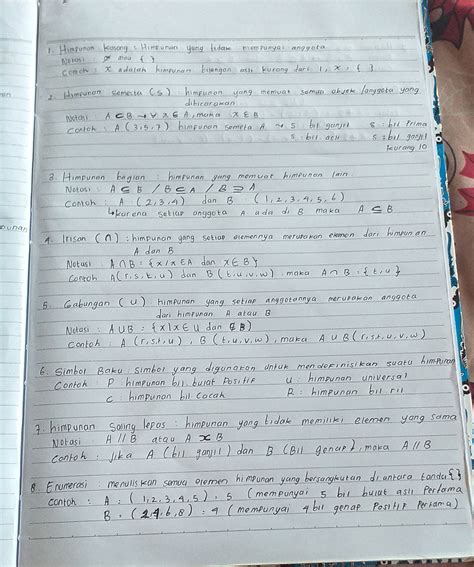 1. Himpunan kosong : Himpunan yang tidak mempunyai anggota
Notasi : ∅ atau { }
Contoh : x adalah himpunan bilangan asli kurang dari 1, x, { }
2. Himpunan semesta (s) himpunan yang memuat semua obyek /anggota yang
dibicarakan.
Notasi A ⊂ B → ∀ x ∈ A, maka x ∈ B
Contoh : A (3,5,7) himpunan semesta A → S : bil ganjil S : bil Prima
S : bil asli S : bil ganjil
kurang 10
3. Himpunan bagian : himpunan yang memuat himpunan lain.
Notasi : A ⊆ B / B ⊆ A / B ⊇ A
Contoh : A (2,3,4) dan B (1,2,3,4,5,6)
↳karena setiap anggota A ada di B maka A ⊆ B
4. Irison (∩) : himpunan yang setiap elemennya merupakan elemen dari himpunan
A dan B
Notasi : A ∩ B : {x/x∈A dan x∈B}
Contoh A(r,s,t,u) dan B (t,u,v,w), maka A ∩ B = {t,u}
5. Gabungan (∪) himpunan yang setiap anggotannya merupakan anggota
dari himpunan A atau B
Notasi : A∪B : {x|x∈U dan B}
Contoh : A (r,s,t,u), B (t,u,v,w), maka A ∪ B (r,s,t,u,v,w)
6. Simbol Baku : Simbol yang digunakan untuk mendefinisikan suatu himpunan
Contoh : P himpunan bil. bulat Positif U : himpunan universal
C : himpunan bil. Cacah R : himpunan bil ril
7. himpunan Saling lepas : himpunan yang tidak memiliki elemen yang sama
Notasi : A // B atau A B
Contoh : Jika A (bil ganjil) dan B (Bil genap), maka A // B
8. Enumerasi : menuliskan semua elemen himpunan yang bersangkutan di antara tanda { }
Contoh : A : (1,2,3,4,5) = 5 (mempunyai 5 bil bulat asli Pertama
B : (2,4,6,8) = 4 (mempunyai 4 bil genap Positif Pertama)